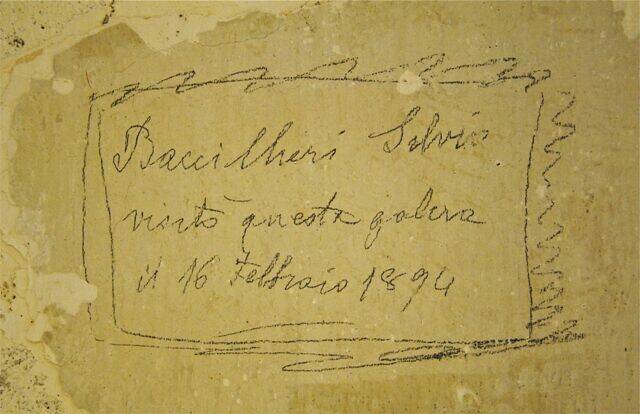 Baccilheri Silvio
visitò questa galera
il 16 Febbraio 1894